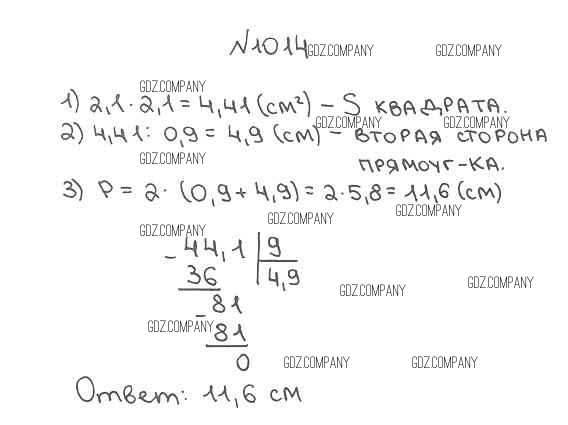 №1014 GDZ.COMPANY GDZ.COMPANY
GDZ.COMPANY
1) 2,1 · 2,1 = 4,41 (см²) – S КВАДРАТА.
GDZ.COMPANY GDZ.COMPANY
2) 4,41 : 0,9 = 4,9 (см) – ВТОРАЯ СТОРОНА
GDZ.COMPANY ПРЯМОУГ-КА.
3) P = 2 · (0,9 + 4,9) = 2 · 5,8 = 11,6 (см)
GDZ.COMPANY GDZ.COMPANY
GDZ.COMPANY
– 44,1 | 9
36 | 4,9
GDZ.COMPANY GDZ.COMPANY
– 81
GDZ.COMPANY 81
0 GDZ.COMPANY GDZ.COMPANY
Ответ: 11,6 см